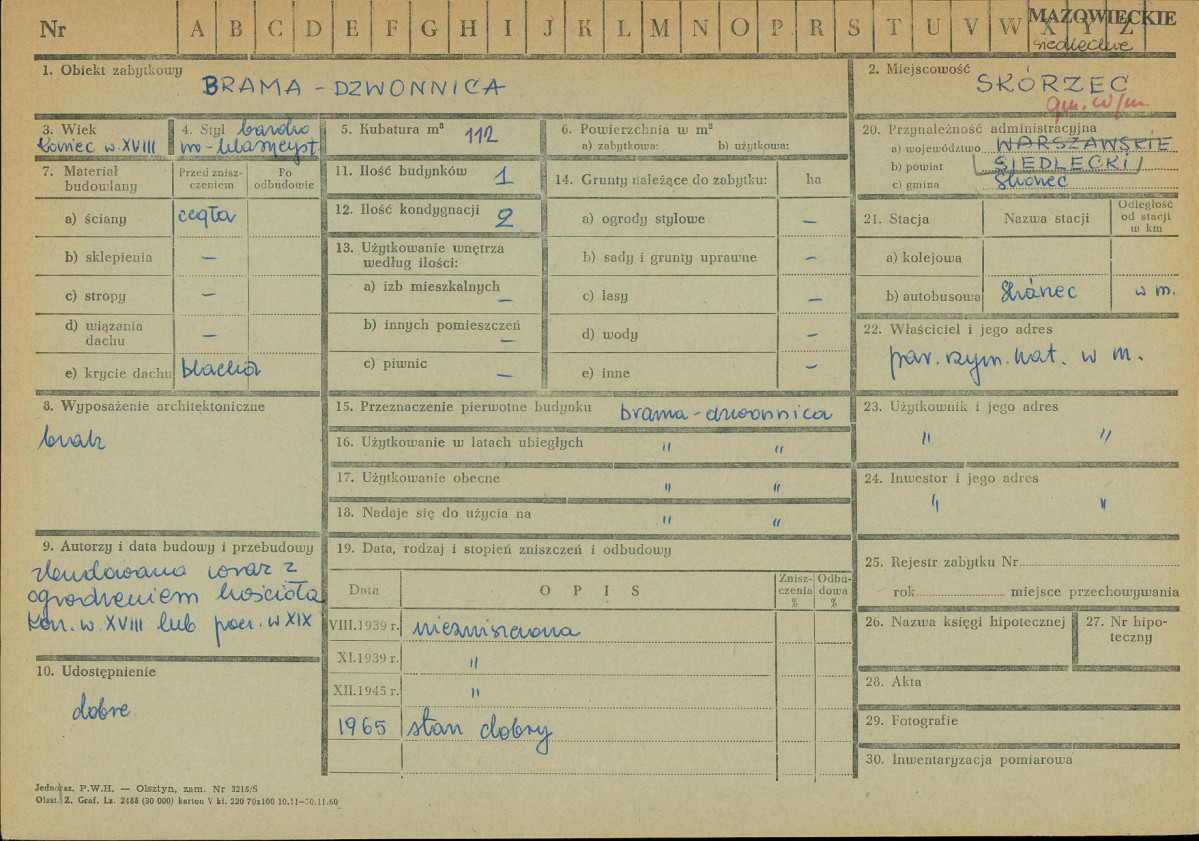 Nr A B C D E F G H I J K L M N O P R S T U V W X Y Z
MAZOWIECKIE
siedleckie
1. Obiekt zabytkowy
BRAMA - DZWONNICA
2. Miejscowość
SKÓRZEC
3. Wiek
koniec w. XVIII
4. Styl barokowo-klasycyst.
5. Kubatura m³ 112
6. Powierzchnia w m²
a) zabytkowa: b) użytkowa:
7. Materiał budowlany
Przed zniszczeniem
Po odbudowie
a) ściany cegła
b) sklepienia —
c) stropy —
d) wiązania dachu —
e) krycie dachu blacha
8. Wyposażenie architektoniczne
brak
9. Autorzy i data budowy i przebudowy
zbudowana wraz z
ogrodzeniem kościoła
kon. w. XVIII lub pocz. w XIX
10. Udostępnienie
dobre
11. Ilość budynków 1
12. Ilość kondygnacji 2
13. Użytkowanie wnętrza
według ilości:
a) izb mieszkalnych —
b) innych pomieszczeń —
c) piwnic —
14. Grunty należące do zabytku: ha
a) ogrody stylowe —
b) sady i grunty uprawne —
c) lasy —
d) wody —
e) inne —
15. Przeznaczenie pierwotne budynku brama-dzwonnica
16. Użytkowanie w latach ubiegłych " "
17. Użytkowanie obecne " "
18. Nadaje się do użycia na " "
19. Data, rodzaj i stopień zniszczeń i odbudowy
Data OPIS Zniszczenia % Odbudowa %
VIII.1939 r. niezniszczona
XI.1939 r. "
XII.1945 r. "
1965 stan dobry
20. Przynależność administracyjna
a) województwo WARSZAWSKIE
b) powiat SIEDLECKI
c) gmina Skórzec
21. Stacja Nazwa stacji Odległość od stacji w km
a) kolejowa
b) autobusowa Skórzec w m.
22. Właściciel i jego adres
par. rzym. kat. w m.
23. Użytkownik i jego adres
" "
24. Inwestor i jego adres
" "
25. Rejestr zabytku Nr
rok miejsce przechowywania
26. Nazwa księgi hipotecznej
27. Nr hipoteczny
28. Akta
29. Fotografie
30. Inwentaryzacja pomiarowa
Jednoraz. P.W.H. — Olsztyn, zam. Nr 3215/S
Olszt. Z. Graf. Lz. 2455 (30 000) karton V kl. 220 70x100 10.11—30.11.60